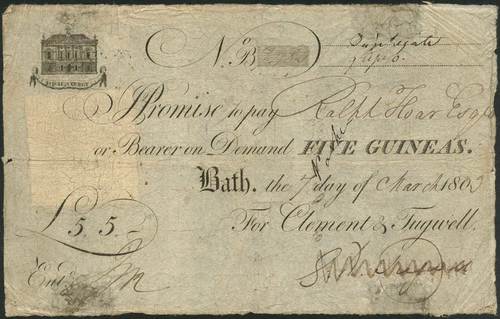 No. B
Duplicate
I Promise to pay Ralph Hoar Esqr
or Bearer on Demand FIVE GUINEAS.
Bath. the 7 day of March 1803
£ 5,5,-
For Clement & Tugwell.
Entd